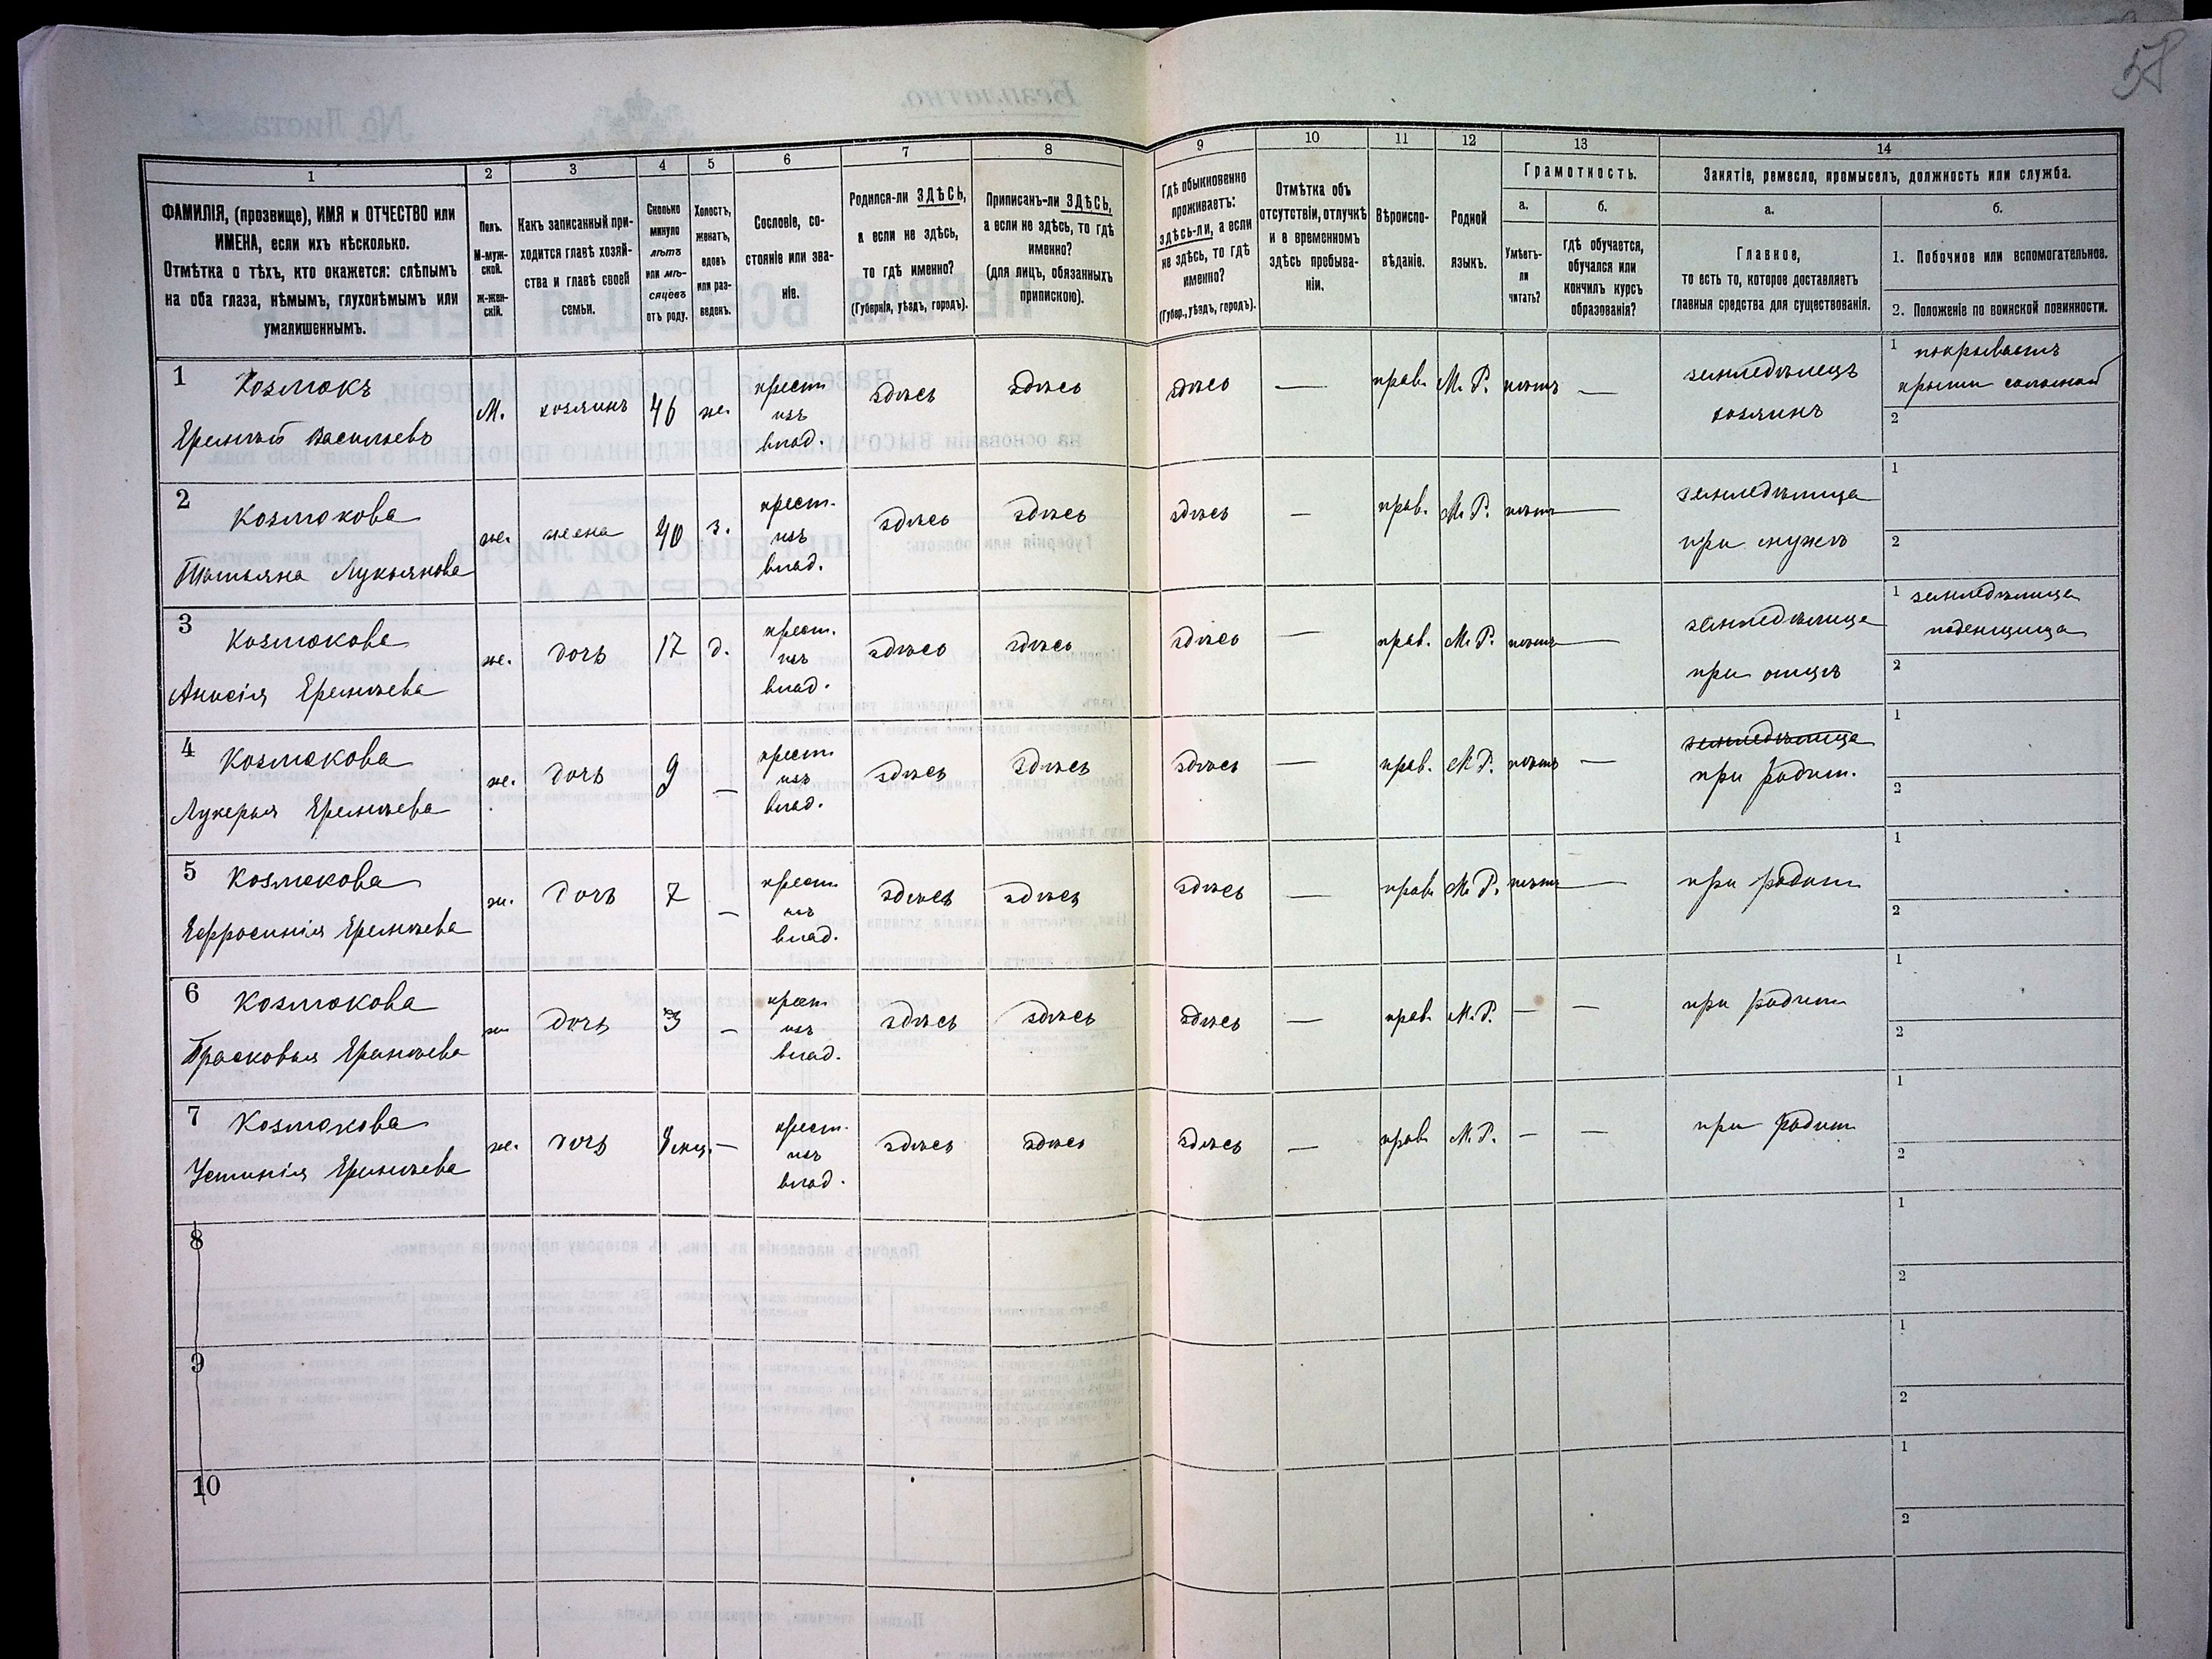 58
1
2
3
4
5
6
7
8
9
10
11
12
13
14
ФАМИЛІЯ, (прозвище), ИМЯ и ОТЧЕСТВО или
ИМЕНА, если ихъ нѣсколько.
Отмѣтка о тѣхъ, кто окажется: слѣпымъ
на оба глаза, нѣмымъ, глухонѣмымъ или
умалишеннымъ.
Полъ.
М-муж-
ской.
Ж-жен-
скій.
Какъ записанный при-
ходится главѣ хозяй-
ства и главѣ своей
семьи.
Сколько
минуло
лѣтъ
или мѣ-
сяцевъ
отъ роду.
Холостъ,
женатъ,
вдовъ
или раз-
веденъ.
Сословіе, со-
стояніе или зва-
ніе.
Родился-ли ЗДѢСЬ,
а если не здѣсь,
то гдѣ именно?
(Губернія, уѣздъ, городъ).
Приписанъ-ли ЗДѢСЬ,
а если не здѣсь, то гдѣ
именно?
(для лицъ, обязанныхъ
припискою).
Гдѣ обыкновенно
проживаетъ:
здѣсь-ли, а если
не здѣсь, то гдѣ
именно?
(Губер., уѣздъ, городъ).
Отмѣтка объ
отсутствіи, отлучкѣ
и о временномъ
здѣсь пребыва-
ніи.
Вѣроиспо-
вѣданіе.
Родной
языкъ.
Грамотность.
а.
Умѣетъ-
ли
читать?
б.
Гдѣ обучается,
обучался или
кончилъ курсъ
образованія?
Занятіе, ремесло, промыселъ, должность или служба.
а.
Главное,
то есть то, которое доставляетъ
главныя средства для существованія.
б.
1. Побочное или вспомогательное.
2. Положеніе по воинской повинности.
1 Козмокъ
Еремѣй Васильевъ
М. хозяинъ 46 ж. крест. изъ влад. здѣсь здѣсь здѣсь — прав. М. Р. нѣтъ —
земледѣлецъ
хозяинъ
1 покрываетъ
крыши соломой
2
2 Козмокова
Татьяна Лукьянова
ж. жена 40 з. крест. изъ влад. здѣсь здѣсь здѣсь — прав. М. Р. нѣтъ —
земледѣлица
при мужѣ
1
2
3 Козмокова
Анисія Еремѣева
ж. дочь 17 д. крест. изъ влад. здѣсь здѣсь здѣсь — прав. М. Р. нѣтъ —
земледѣлица
при отцѣ
1 земледѣлица
поденщица
2
4 Козмокова
Лукерья Еремѣева
ж. дочь 9 — крест. изъ влад. здѣсь здѣсь здѣсь — прав. М. Р. нѣтъ —
земледѣлица
при родит.
1
2
5 Козмокова
Ефросинія Еремѣева
ж. дочь 7 — крест. изъ влад. здѣсь здѣсь здѣсь — прав. М. Р. нѣтъ —
при родит
1
2
6 Козмокова
Прасковья Еремѣева
ж. дочь 3 — крест. изъ влад. здѣсь здѣсь здѣсь — прав. М. Р. — —
при родит
1
2
7 Козмокова
Устинія Еремѣева
ж. дочь 8 мц. — крест. изъ влад. здѣсь здѣсь здѣсь — прав. М. Р. — —
при родит
1
2
8
1
2
9
1
2
10
1
2